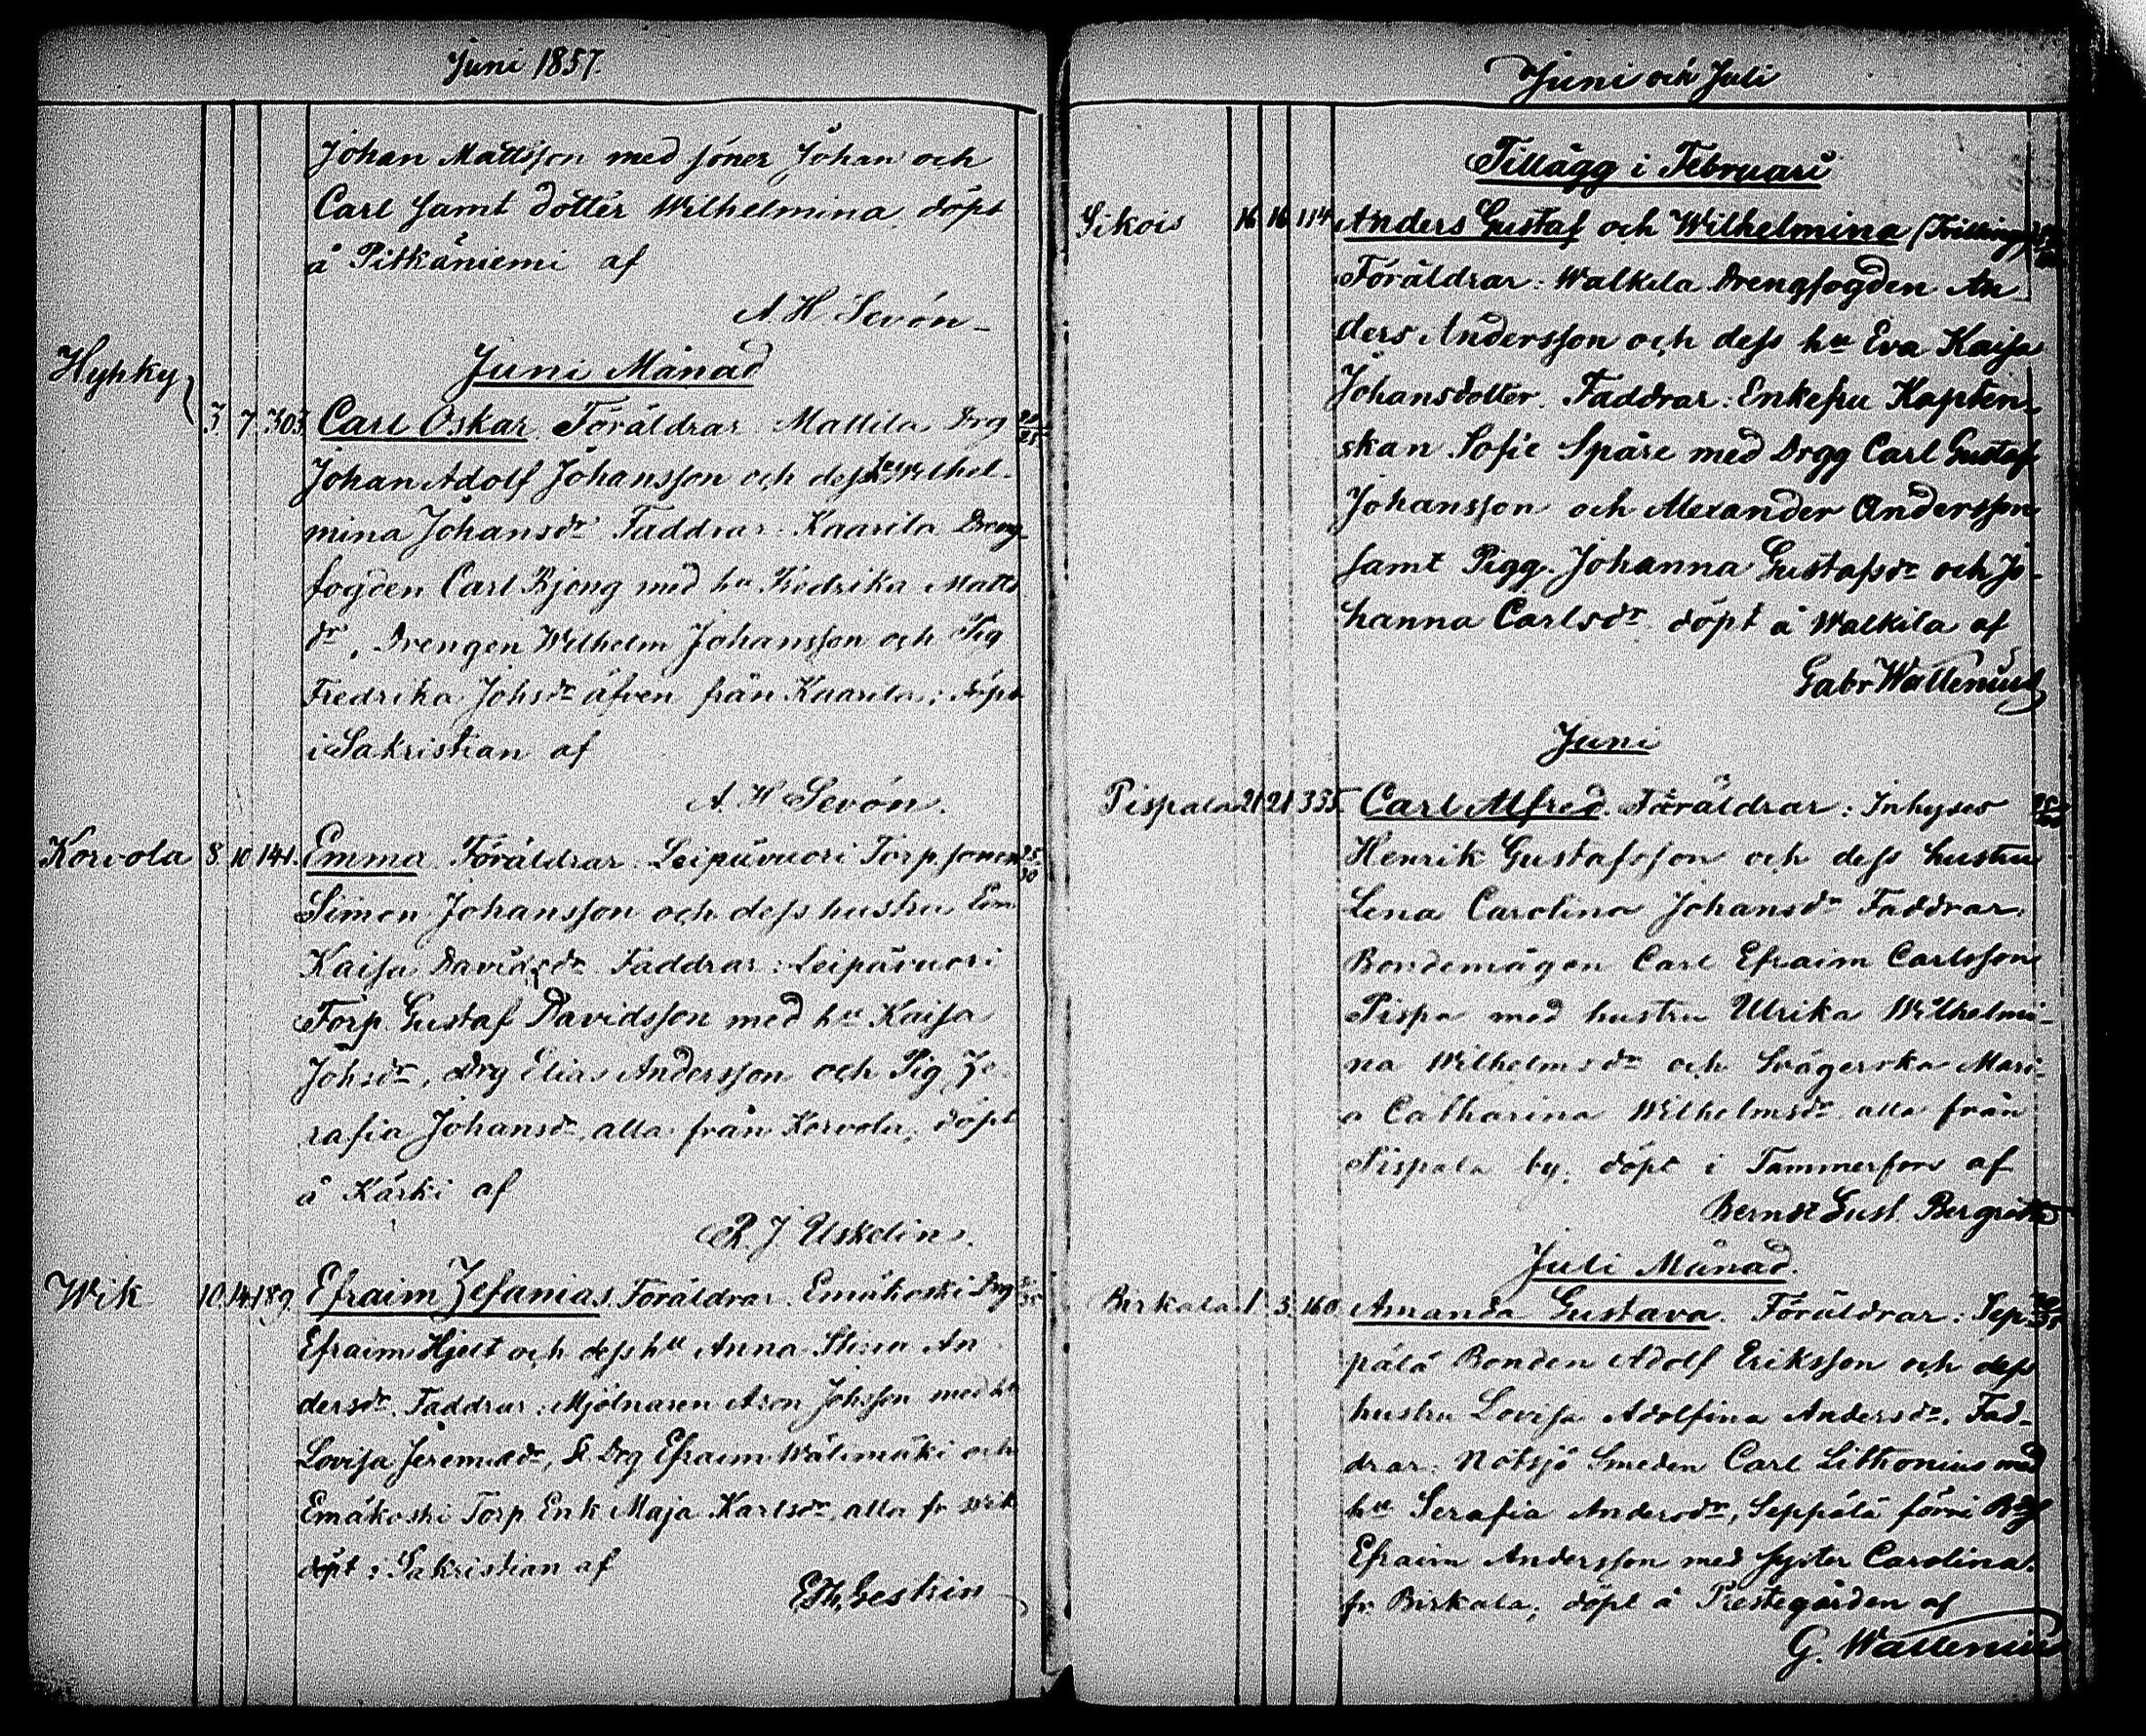 Juni 1857.
Johan Mattsson med söner Johan och
Carl samt dotter Wilhelmina, döpt
å Pitkäniemi af
A. H. Sevón
Juni Månad
Hyhky 3. 7. 303 Carl Oskar. Föräldrar: Mattila Drg
Johan Adolf Johansson och dess hu Wilhel-
mina Johansdr Faddrar: Kaarila Dreng
fogden Carl Bjong med hu Fredrika Matts
dr, Drengen Wilhelm Johansson och Pig
Fredrika Johsdr äfven från Kaarila; döpt
i Sakristian af
A. H. Sevón.
Korvola 8. 10. 141. Emma Föräldrar: Leipävuori Torpsonen 25/30
Simon Johansson och dess hustru Eva
Kaisa Davidsdr Faddrar: Leipävuori
Torp. Gustaf Davidsson med hu Kaisa
Johsdr, Drg Elias Andersson och Pig Ze-
rafia Johansdr, alla från Korvola; döpt
å Kärki af
J. Uskelin.
Wik 10. 14. 189. Efraim Zefanias. Föräldrar: Emäkoski Drg
Efraim Hjelt och dess hu Anna Stina An
dersdr. Faddrar: Mjölnaren Aron Johsson med hu
Lovisa Jeremiædr, Drg Efraim Wälimäki och
Emäkoski Torp. Enk. Maja Karlsdr, alla fr Wik
döpt i Sakristian af
E. Th. Geskin
Juni och Juli
Tillägg i Februari
Sikois 16 16 114 Anders Gustaf och Wilhelmina (Tvilling)
Föräldrar: Walkila Drengfogden An
ders Andersson och dess hu Eva Kaisa
Johansdotter. Faddrar: Enkefru Kapten-
skan Sofie Spåre med Drgg Carl Gustaf
Johansson och Alexander Andersson
samt Pigg. Johanna Gustafsdr och Jo-
hanna Carlsdr döpt å Walkila af
Gabr Wallenius
Juni
Pispala 21. 21. 335. Carl Alfred. Föräldrar: Inhyses
Henrik Gustafsson och dess hustru
Lena Carolina Johansdr Faddrar:
Bondemågen Carl Efraim Carlsson
Pispa med hustru Ulrika Wilhelmi-
na Wilhelmsdr och Svägerska Mari-
a Catharina Wilhelmsdr alla från
Pispala by; döpt i Tammerfors af
Bernst Gust. Bergroth
Juli Månad.
Birkala 1. 5. 160 Amanda Gustava. Föräldrar: Sep-
pälä Bonden Adolf Eriksson och dess
hustru Lovisa Adolfina Andersdr. Fad-
drar: Notsjö Smeden Carl Litkonius med
hu Serafia Andersdr, Seppälä förra
Efraim Andersson med syster Carolina.
fr Birkala; döpt å Prestegården af
G. Wallenius